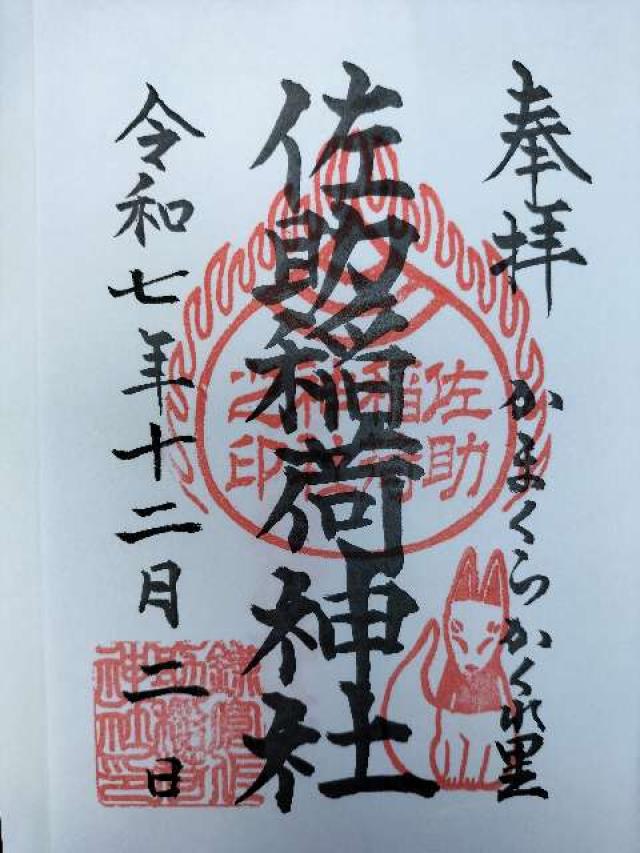 奉拝
かまくらかくれ里
佐助稲荷神社
佐助
稲荷
神社
之印
令和七年十二月二日